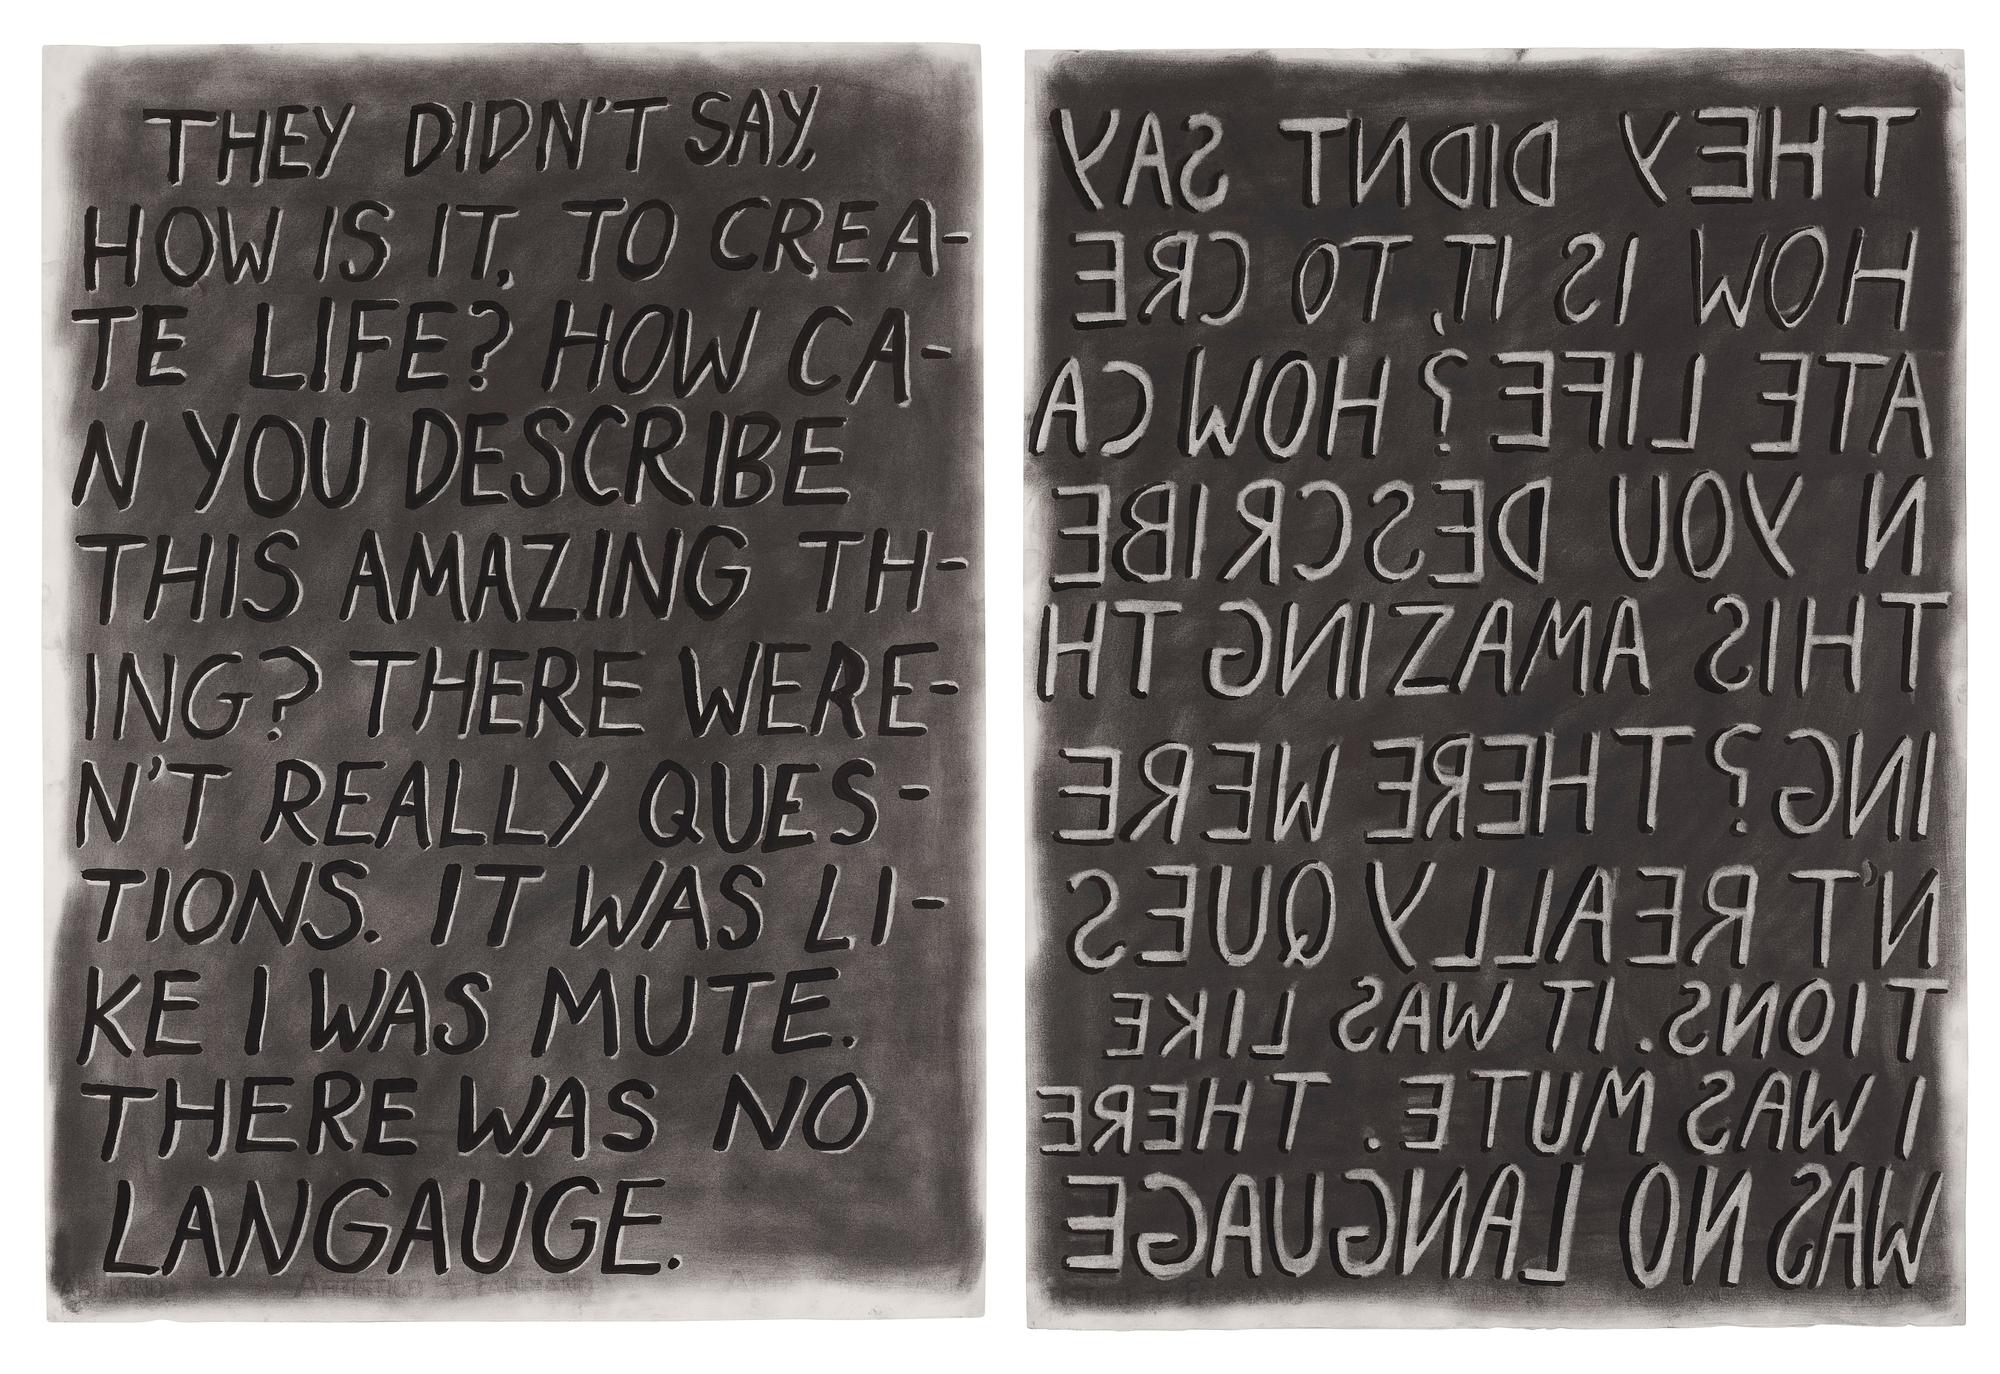 THEY DIDN'T SAY,
HOW IS IT, TO CREA-
TE LIFE? HOW CA-
N YOU DESCRIBE
THIS AMAZING TH-
ING? THERE WERE-
N'T REALLY QUES-
TIONS. IT WAS LI-
KE I WAS MUTE.
THERE WAS NO
LANGAUGE.
THEY DIDNT SAY
HOW IS IT, TO CRE
ATE LIFE? HOW CA
N YOU DESCRIBE
THIS AMAZING TH
ING? THERE WERE
N'T REALLY QUES
TIONS. IT WAS LIKE
I WAS MUTE. THERE
WAS NO LANGUAGE